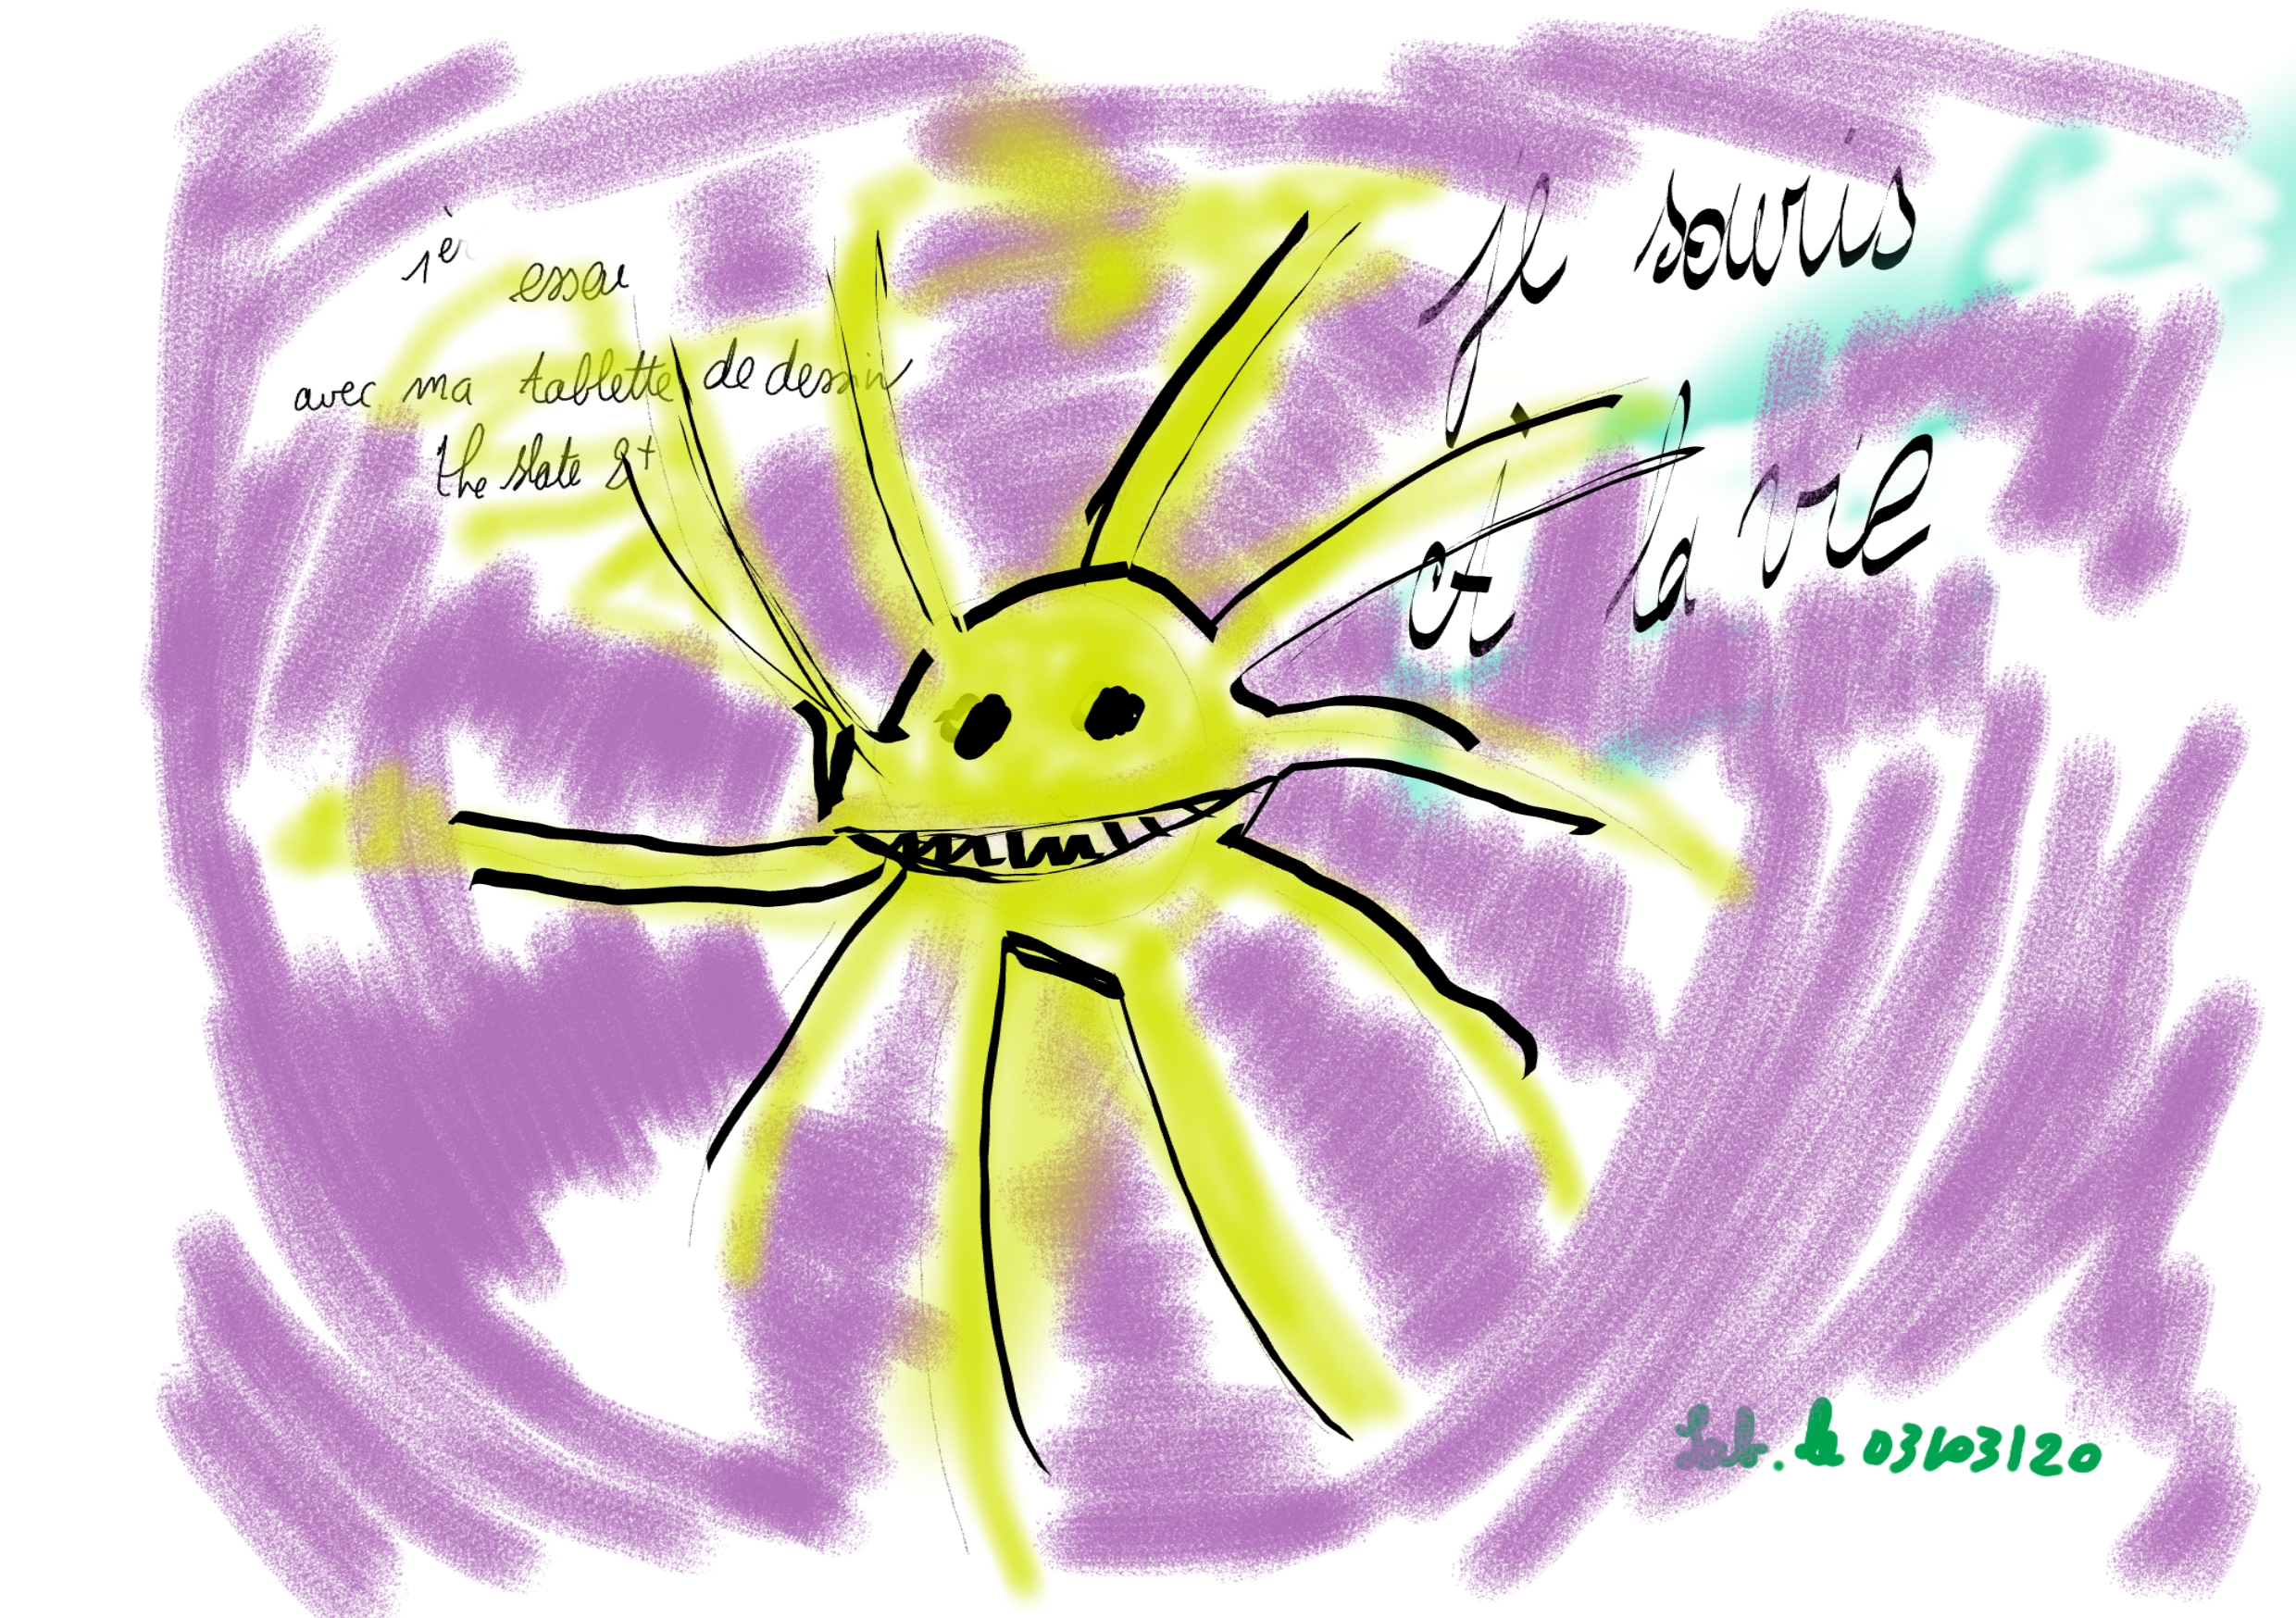 1er
essai
avec ma tablette de dessin
the slate 8+
je souris
et la vie
Seb. le 03/03/20